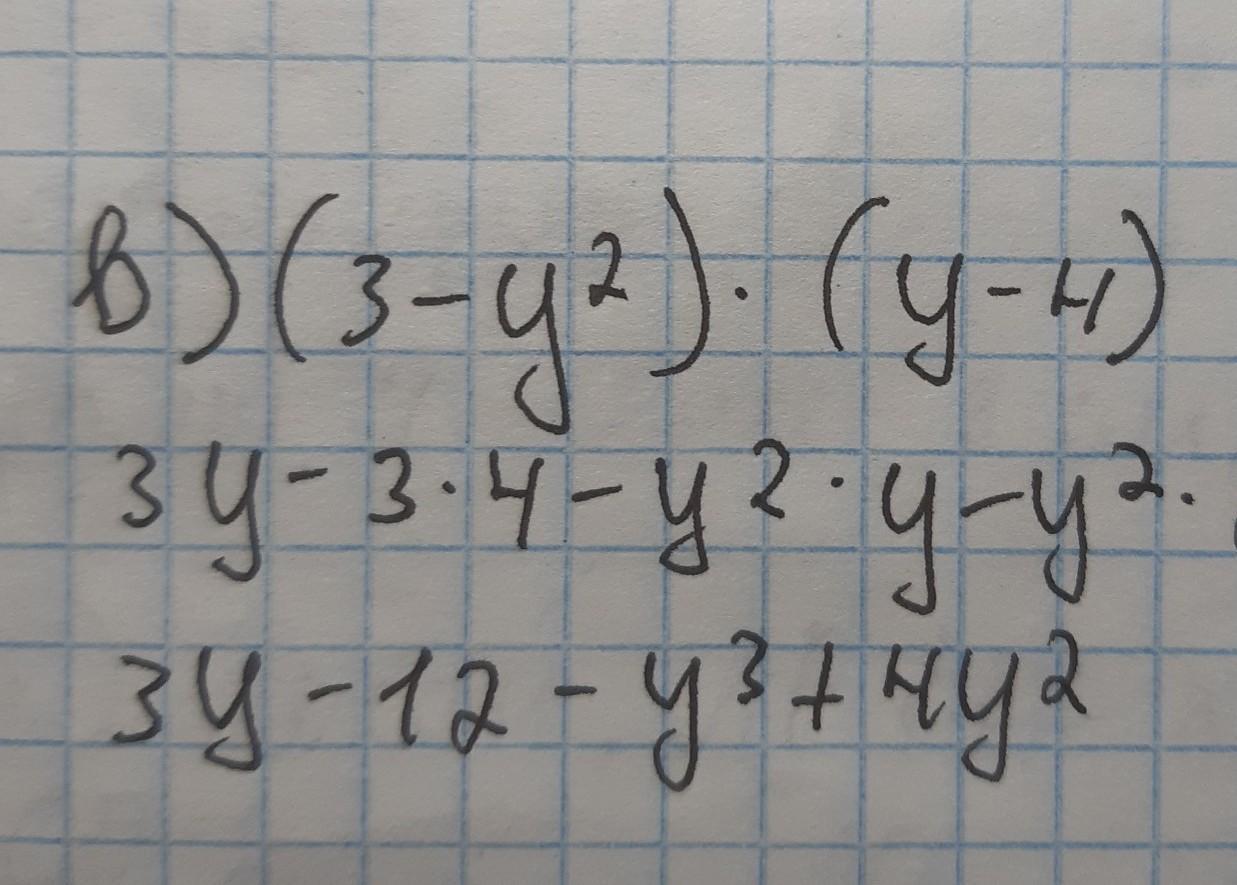 в) (3-y²)·(y-4)
3y-3·4-y²·y-y²·
3y-12-y³+4y²